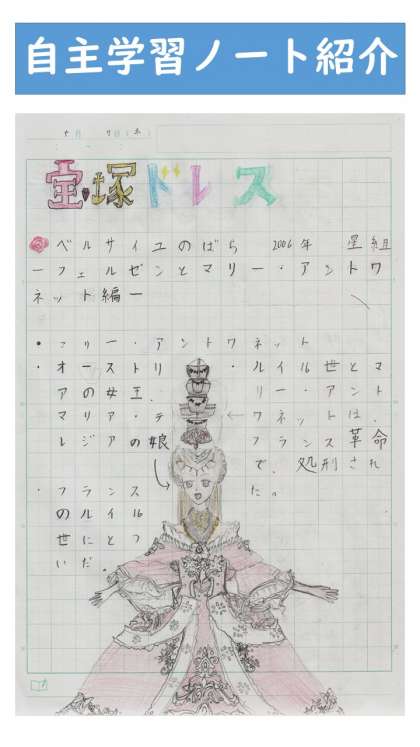 自主学習ノート紹介
宝塚ドレス
ベルサイユのばら 2006年 星組
ーフェルゼンとマリー・アントワ
ネット編ー
・マリー・アントワネット
・オーストリ
アの女王、
マリア・テ
レジアの娘
・フランス
のルイ16
世にとつ
いだ。
・ルイ16世とマ
リー・アント
ワネットは、
フランス革命
で、処刑され
た。